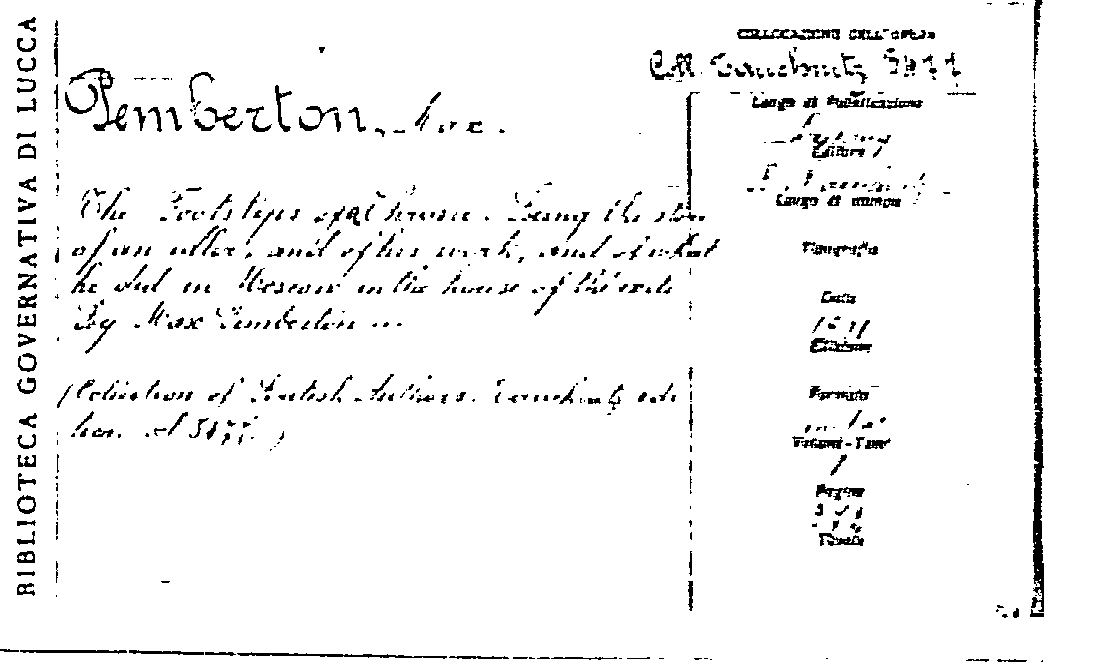 BIBLIOTECA GOVERNATIVA DI LUCCA
Pemberton, Max.
The Footsteps of a Throne. Being the story
of an idler, and of his work, and of what
he did in Moscow in the house of the exile
By Max Pemberton ...
(Collection of British Authors. Tauchnitz edi
tion.
COLLOCAZIONE DELL'OPERA
Coll. Tauchnitz
Luogo di Pubblicazione
Editore
Luogo di stampa
Tipografia
Data
Edizione
Formato
Volumi - Tomi
1
Pagine
Tavole